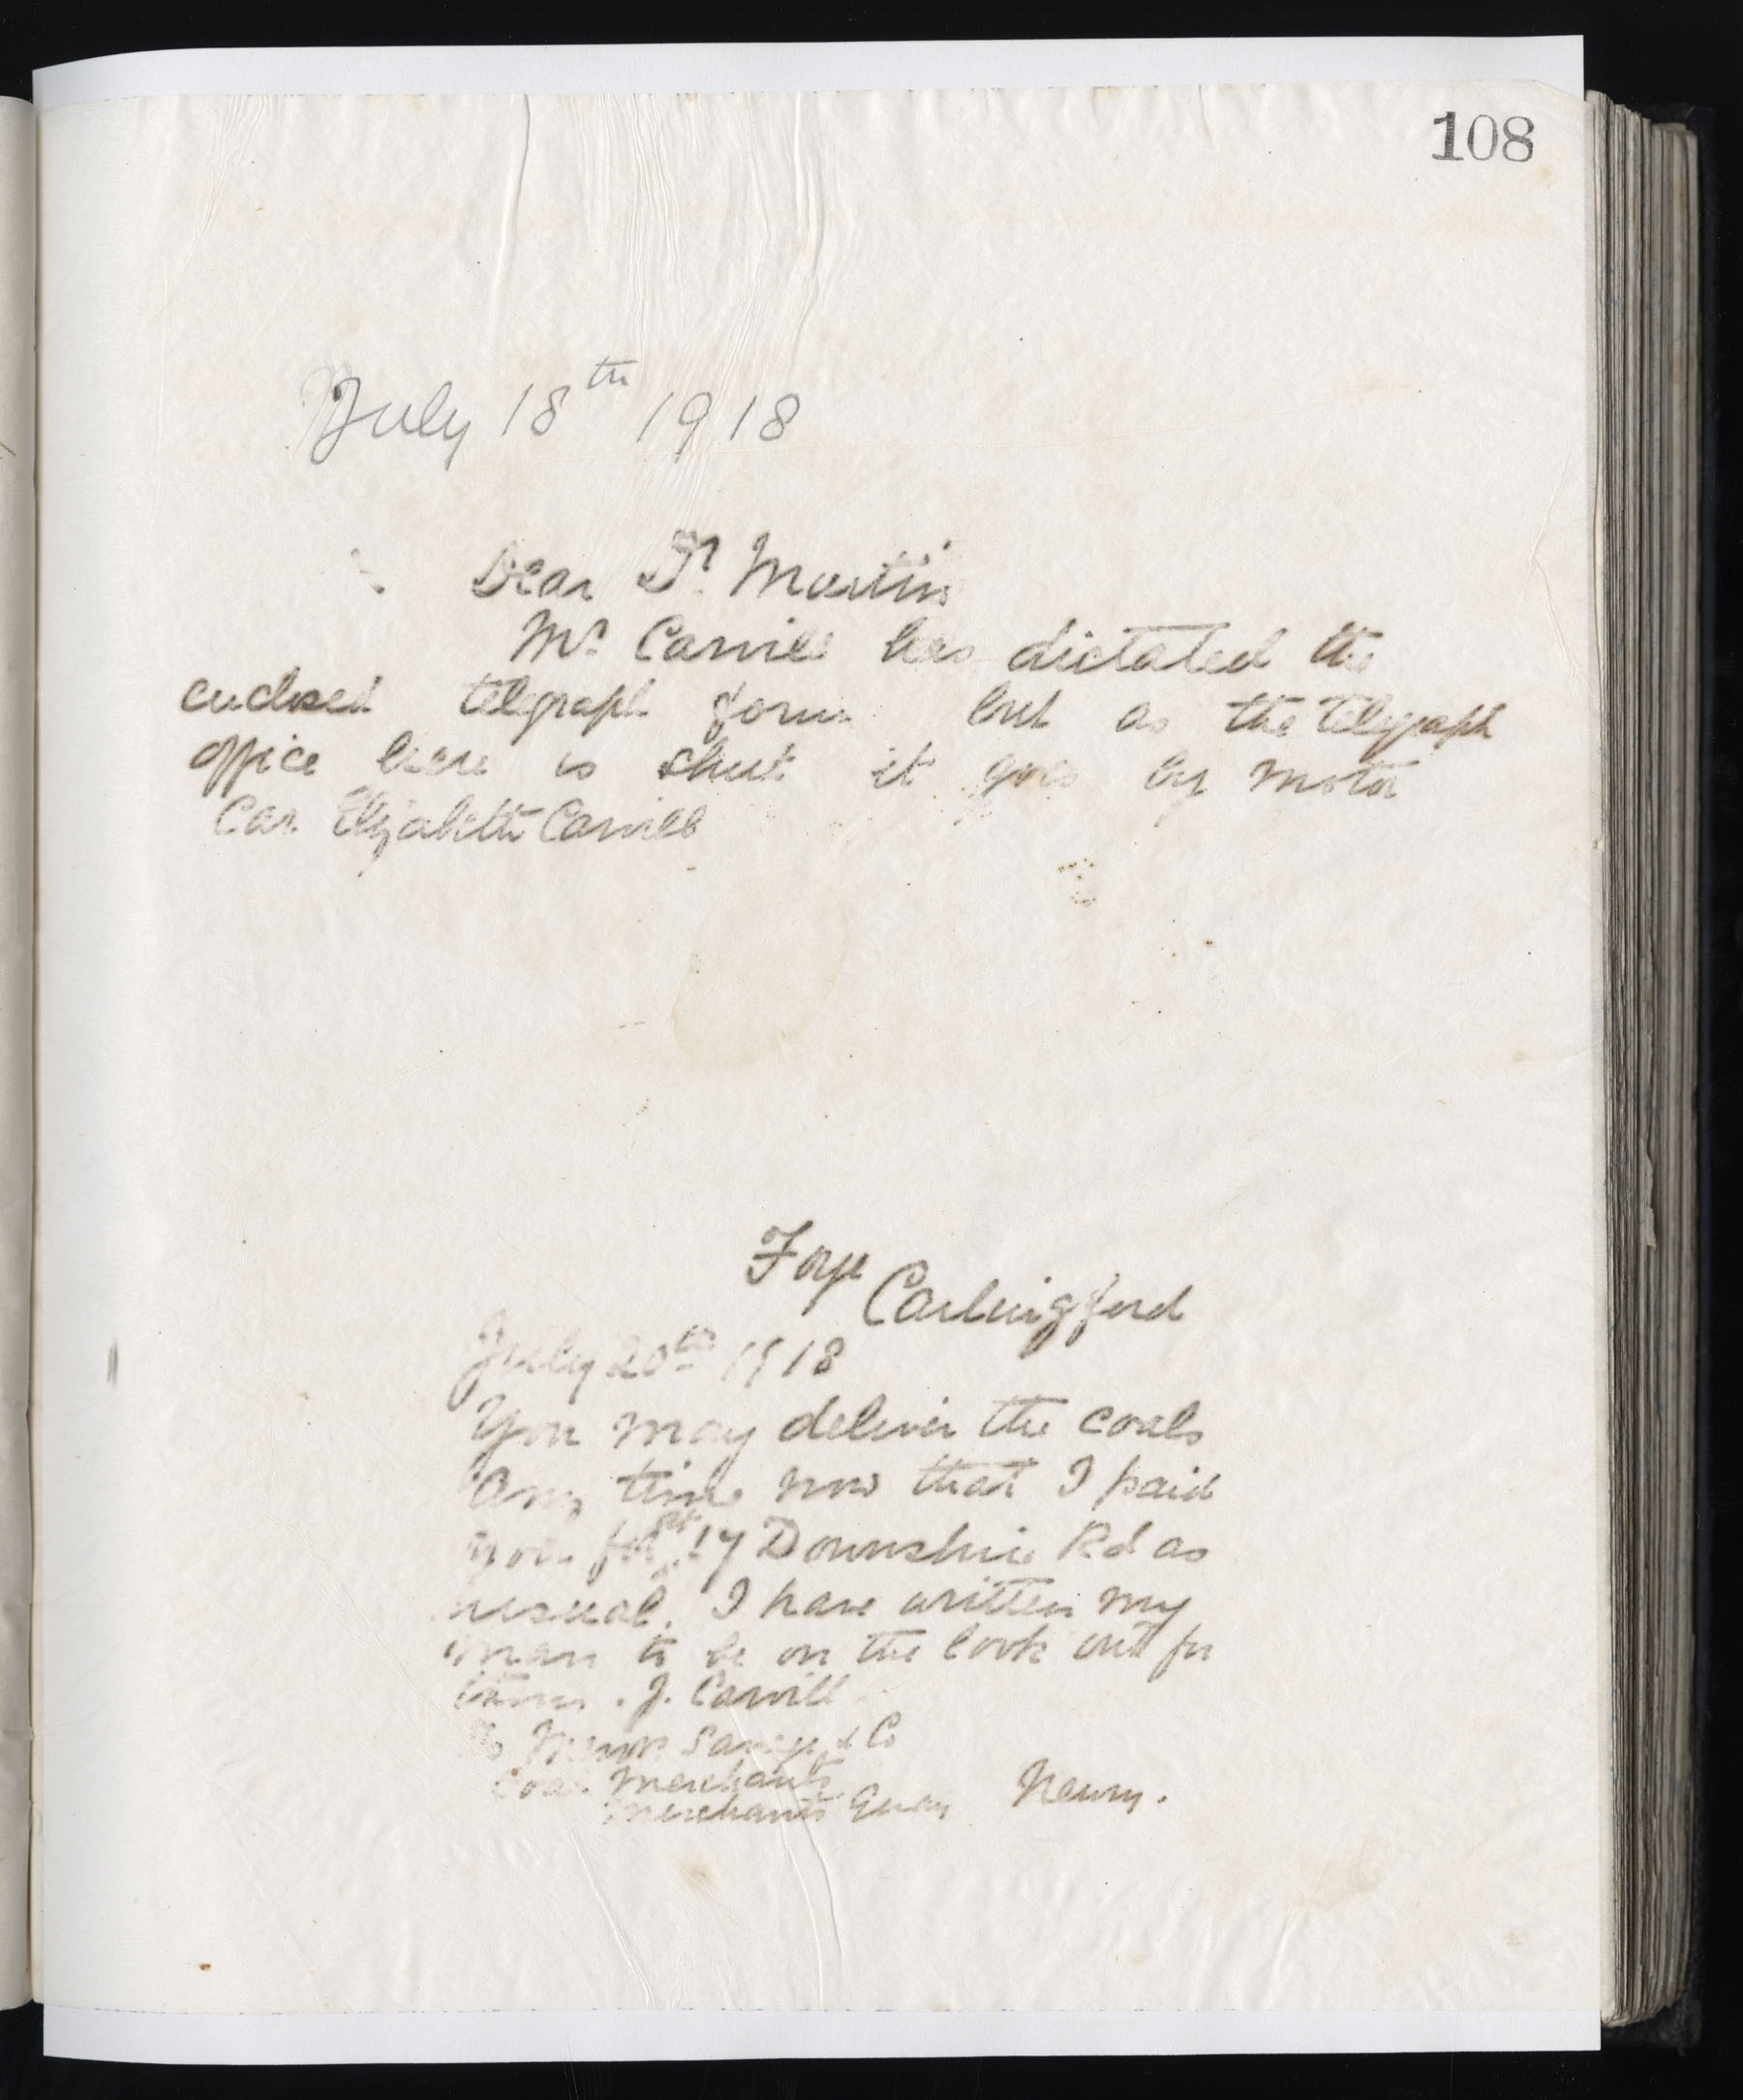 108
July 18th 1918
Dear Dr Martin
Mr Carvill has dictated the
enclosed telegraph form but as the telegraph
office here is shut it goes by motor
Car. Elizabeth Carvill
Faye
Carlingford
July 20th 1918
You may deliver the coals
any time now that I paid
you for at 17 Downshire Rd as
usual. I have written my
man to be on the look out for
them. J. Carvill
To & Co
Coal Merchants
Merchants Quay Newry.